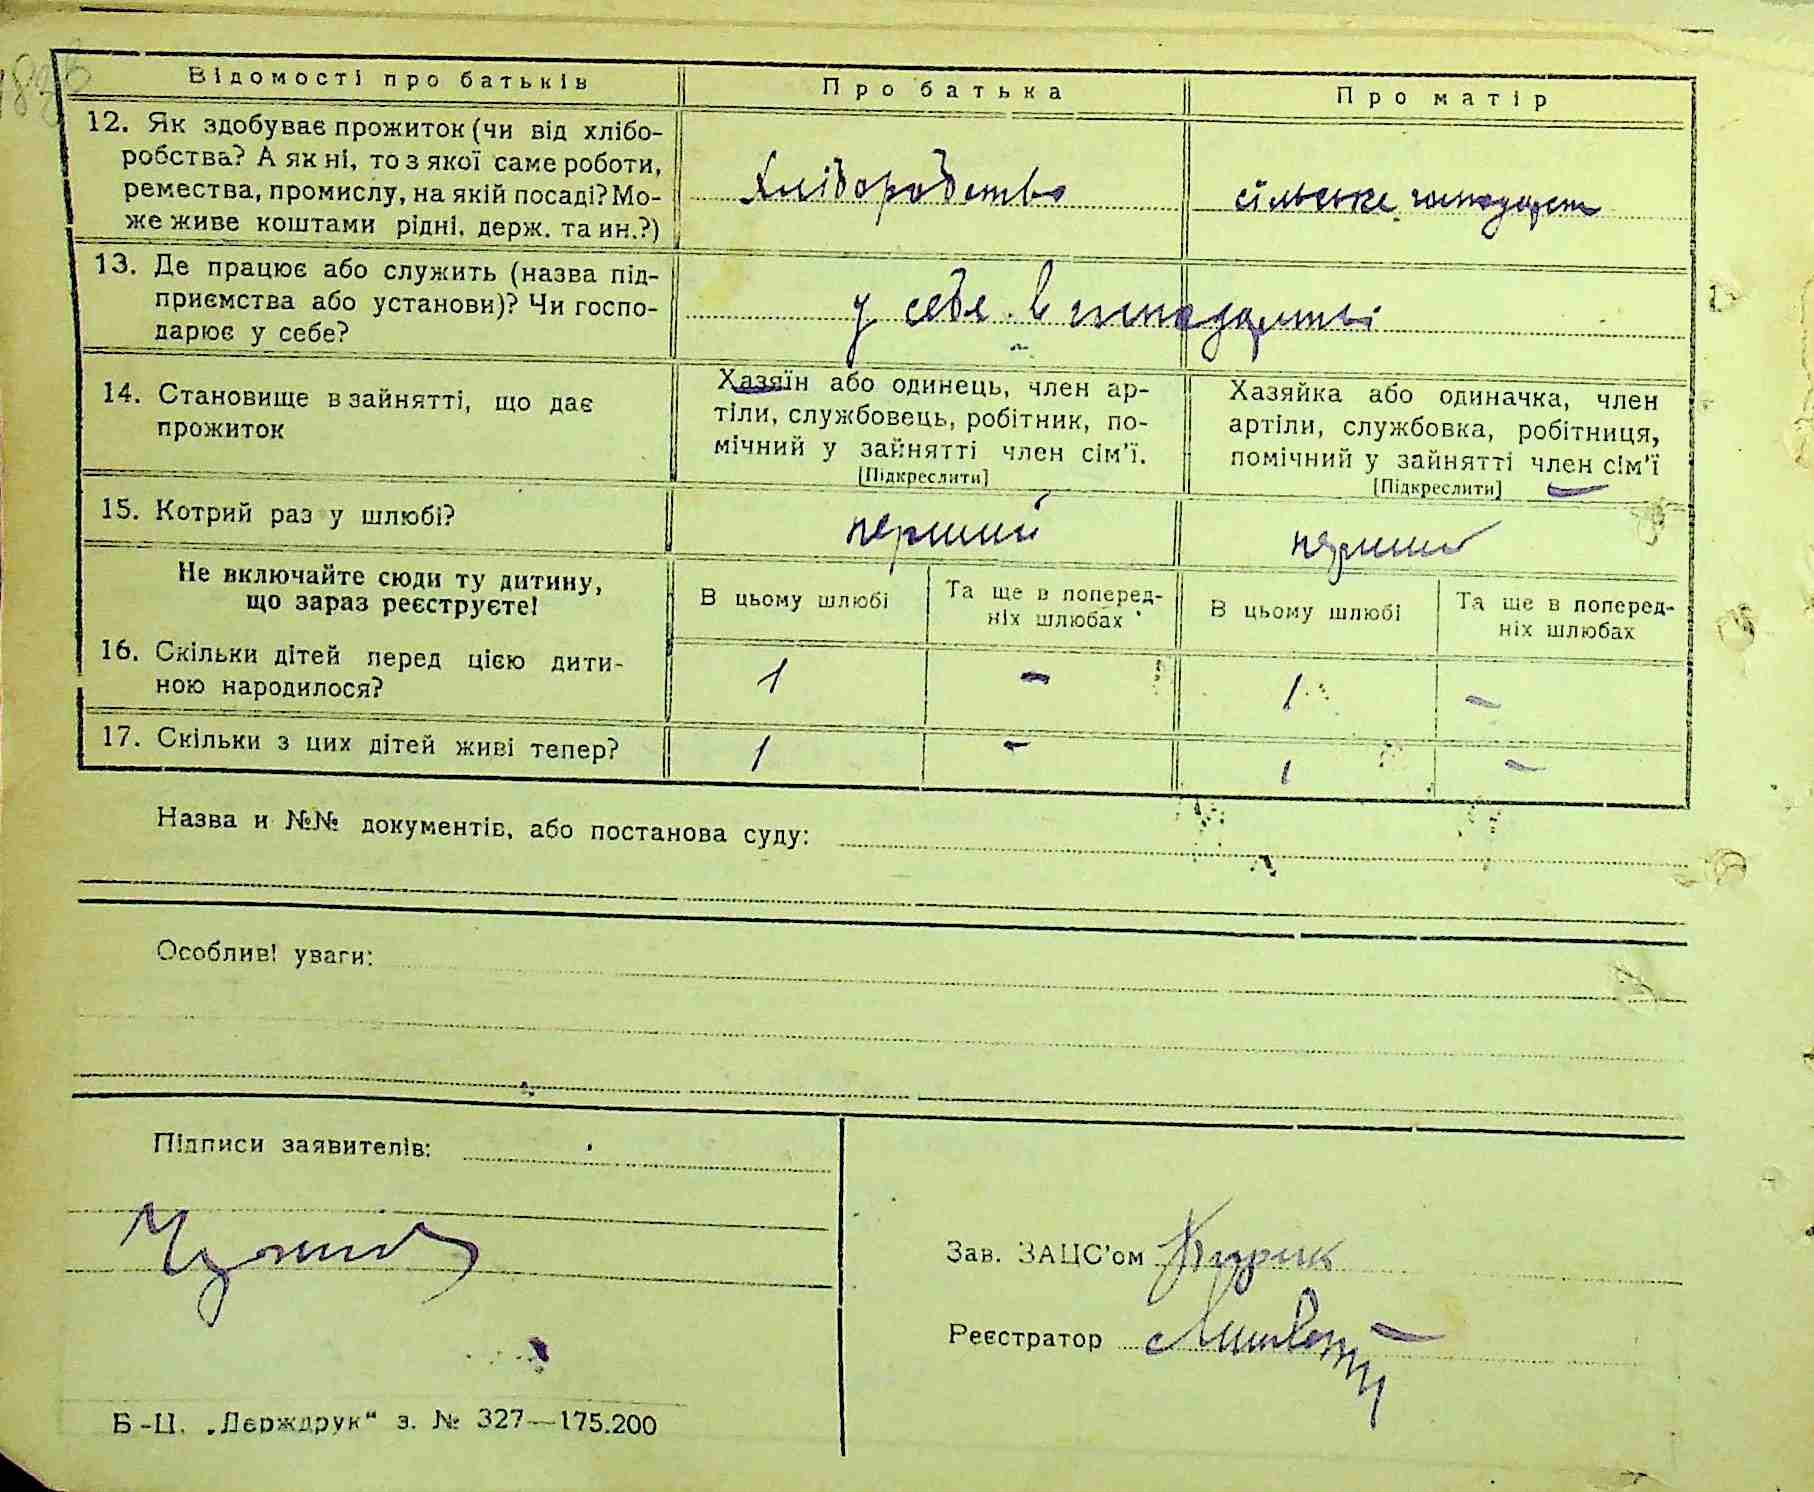 Відомості про батьків Про батька Про матір
12. Як здобуває прожиток (чи від хлібо-
робства? А як ні, то з якої саме роботи,
ремества, промислу, на якій посаді? Мо-
же живе коштами рідні. держ. та ин.?)
Хліборобство
сільське господарств
13. Де працює або служить (назва під-
приємства або установи)? Чи госпо-
дарює у себе?
у себе в господарстві
14. Становище в зайнятті, що дає
прожиток
Хазяїн або одинець, член ар-
тіли, службовець, робітник, по-
мічний у зайнятті член сім'ї.
[Підкреслити]
Хазяйка або одиначка, член
артіли, службовка, робітниця,
помічний у зайнятті член сім'ї
[Підкреслити]
15. Котрий раз у шлюбі? перший перший
Не включайте сюди ту дитину,
що зараз реєструєте!
В цьому шлюбі
Та ще в поперед-
ніх шлюбах
В цьому шлюбі
Та ще в поперед-
ніх шлюбах
16. Скільки дітей перед цією дити-
ною народилося?
1 - 1 -
17. Скільки з цих дітей живі тепер? 1 - 1 -
Назва и №№ документів, або постанова суду:
Особливі уваги:
Підписи заявителів:
Зав. ЗАЦС'ом
Реєстратор
Б-Ц. „Держдрук“ з. № 327—175.200